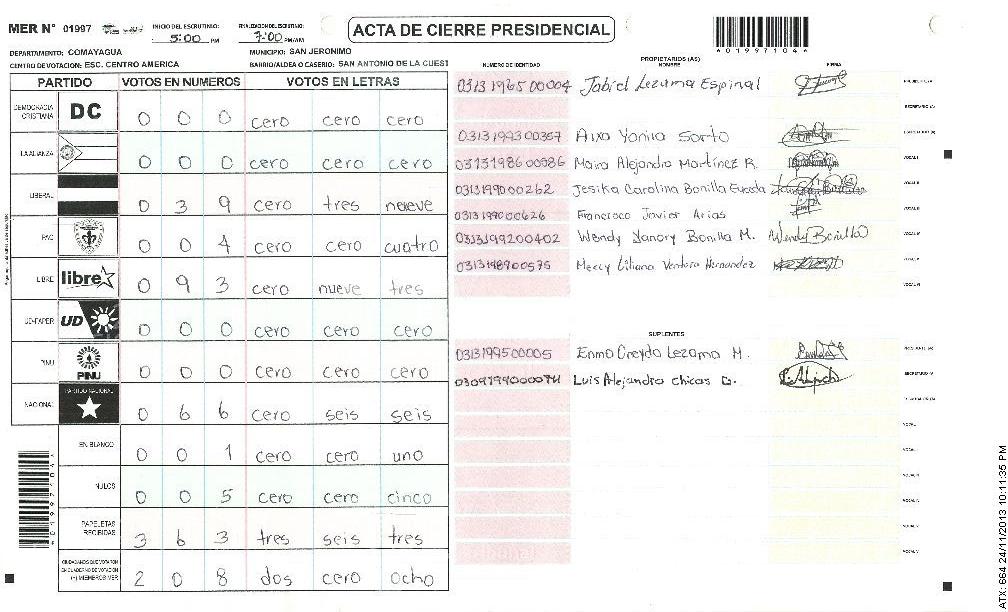 MER N° 01997
INICIO DEL ESCRUTINIO: 5:00 PM
FINALIZACION DEL ESCRUTINIO: 7:00 PM/AM
ACTA DE CIERRE PRESIDENCIAL
4019971044
DEPARTAMENTO: COMAYAGUA
MUNICIPIO: SAN JERONIMO
CENTRO DE VOTACION: ESC. CENTRO AMERICA
BARRIO/ALDEA O CASERIO: SAN ANTONIO DE LA CUEST
PARTIDO VOTOS EN NUMEROS VOTOS EN LETRAS
DEMOCRACIA CRISTIANA DC 0 0 0 cero cero cero
LA ALIANZA 0 0 0 cero cero cero
LIBERAL 0 3 9 cero tres nueve
PAC 0 0 4 cero cero cuatro
LIBRE libre 0 9 3 cero nueve tres
UD-FAPER UD 0 0 0 cero cero cero
PINU PINU 0 0 0 cero cero cero
NACIONAL PARTIDO NACIONAL 0 6 6 cero seis seis
EN BLANCO 0 0 1 cero cero uno
NULOS 0 0 5 cero cero cinco
PAPELETAS RECIBIDAS 3 6 3 tres seis tres
CIUDADANOS QUE VOTARON EN CUADERNO DE VOTACION (+) MIEMBROS MER 2 0 8 dos cero ocho
PROPIETARIOS (AS)
NUMERO DE IDENTIDAD NOMBRE FIRMA
0313196500004 Jabiel Lezama Espinal
SECRETARIO (A)
0313199300357 Aixa Yanira Sorto
0313198600586 Maira Alejandra Martínez R. VOCAL I
0313199000262 Jesika Carolina Bonilla VOCAL II
0313199000626 Francisco Javier Arias VOCAL III
0313199200402 Wendy Yanory Bonilla M. Wendy Bonilla VOCAL IV
0313198900575 Mercy Liliana Ventura Hernandez VOCAL V
VOCAL VI
SUPLENTES
0313199500005 Enma Lezama M.
Luis Alejandro Chicas SECRETARIO (A)
ATX: 664 24/11/2013 10:11:35 PM